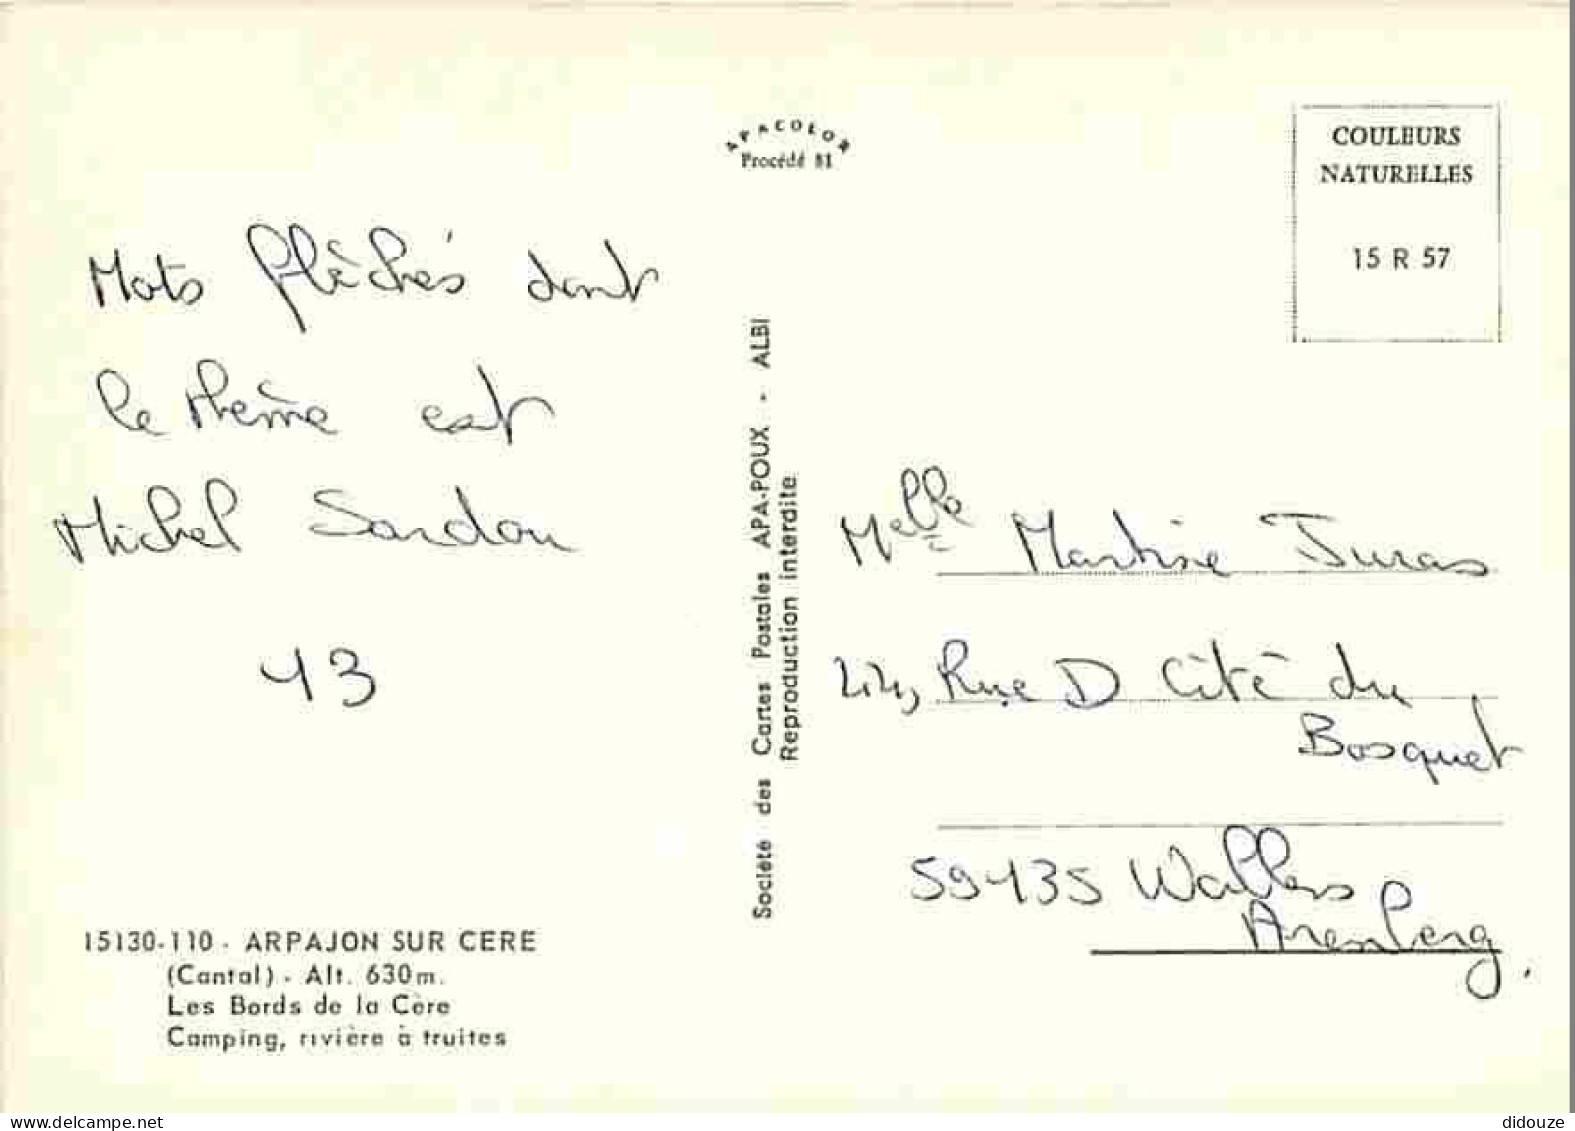 APACOLOR
Procédé 81
COULEURS
NATURELLES
15 R 57
Mots flêchés dont
le thème est
Michel Sardou
43
Société des Cartes Postales APA-POUX - ALBI
Reproduction interdite
Melle Martine Juras
44, Rue D Cité du
Bosquet
59135 Wallers
Arenberg.
15130-110 - ARPAJON SUR CERE
(Cantal) - Alt. 630m.
Les Bords de la Cère
Camping, rivière à truites
delcampe.net
didouze